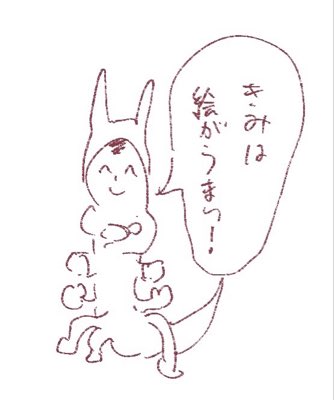 きみは
絵がうまい!